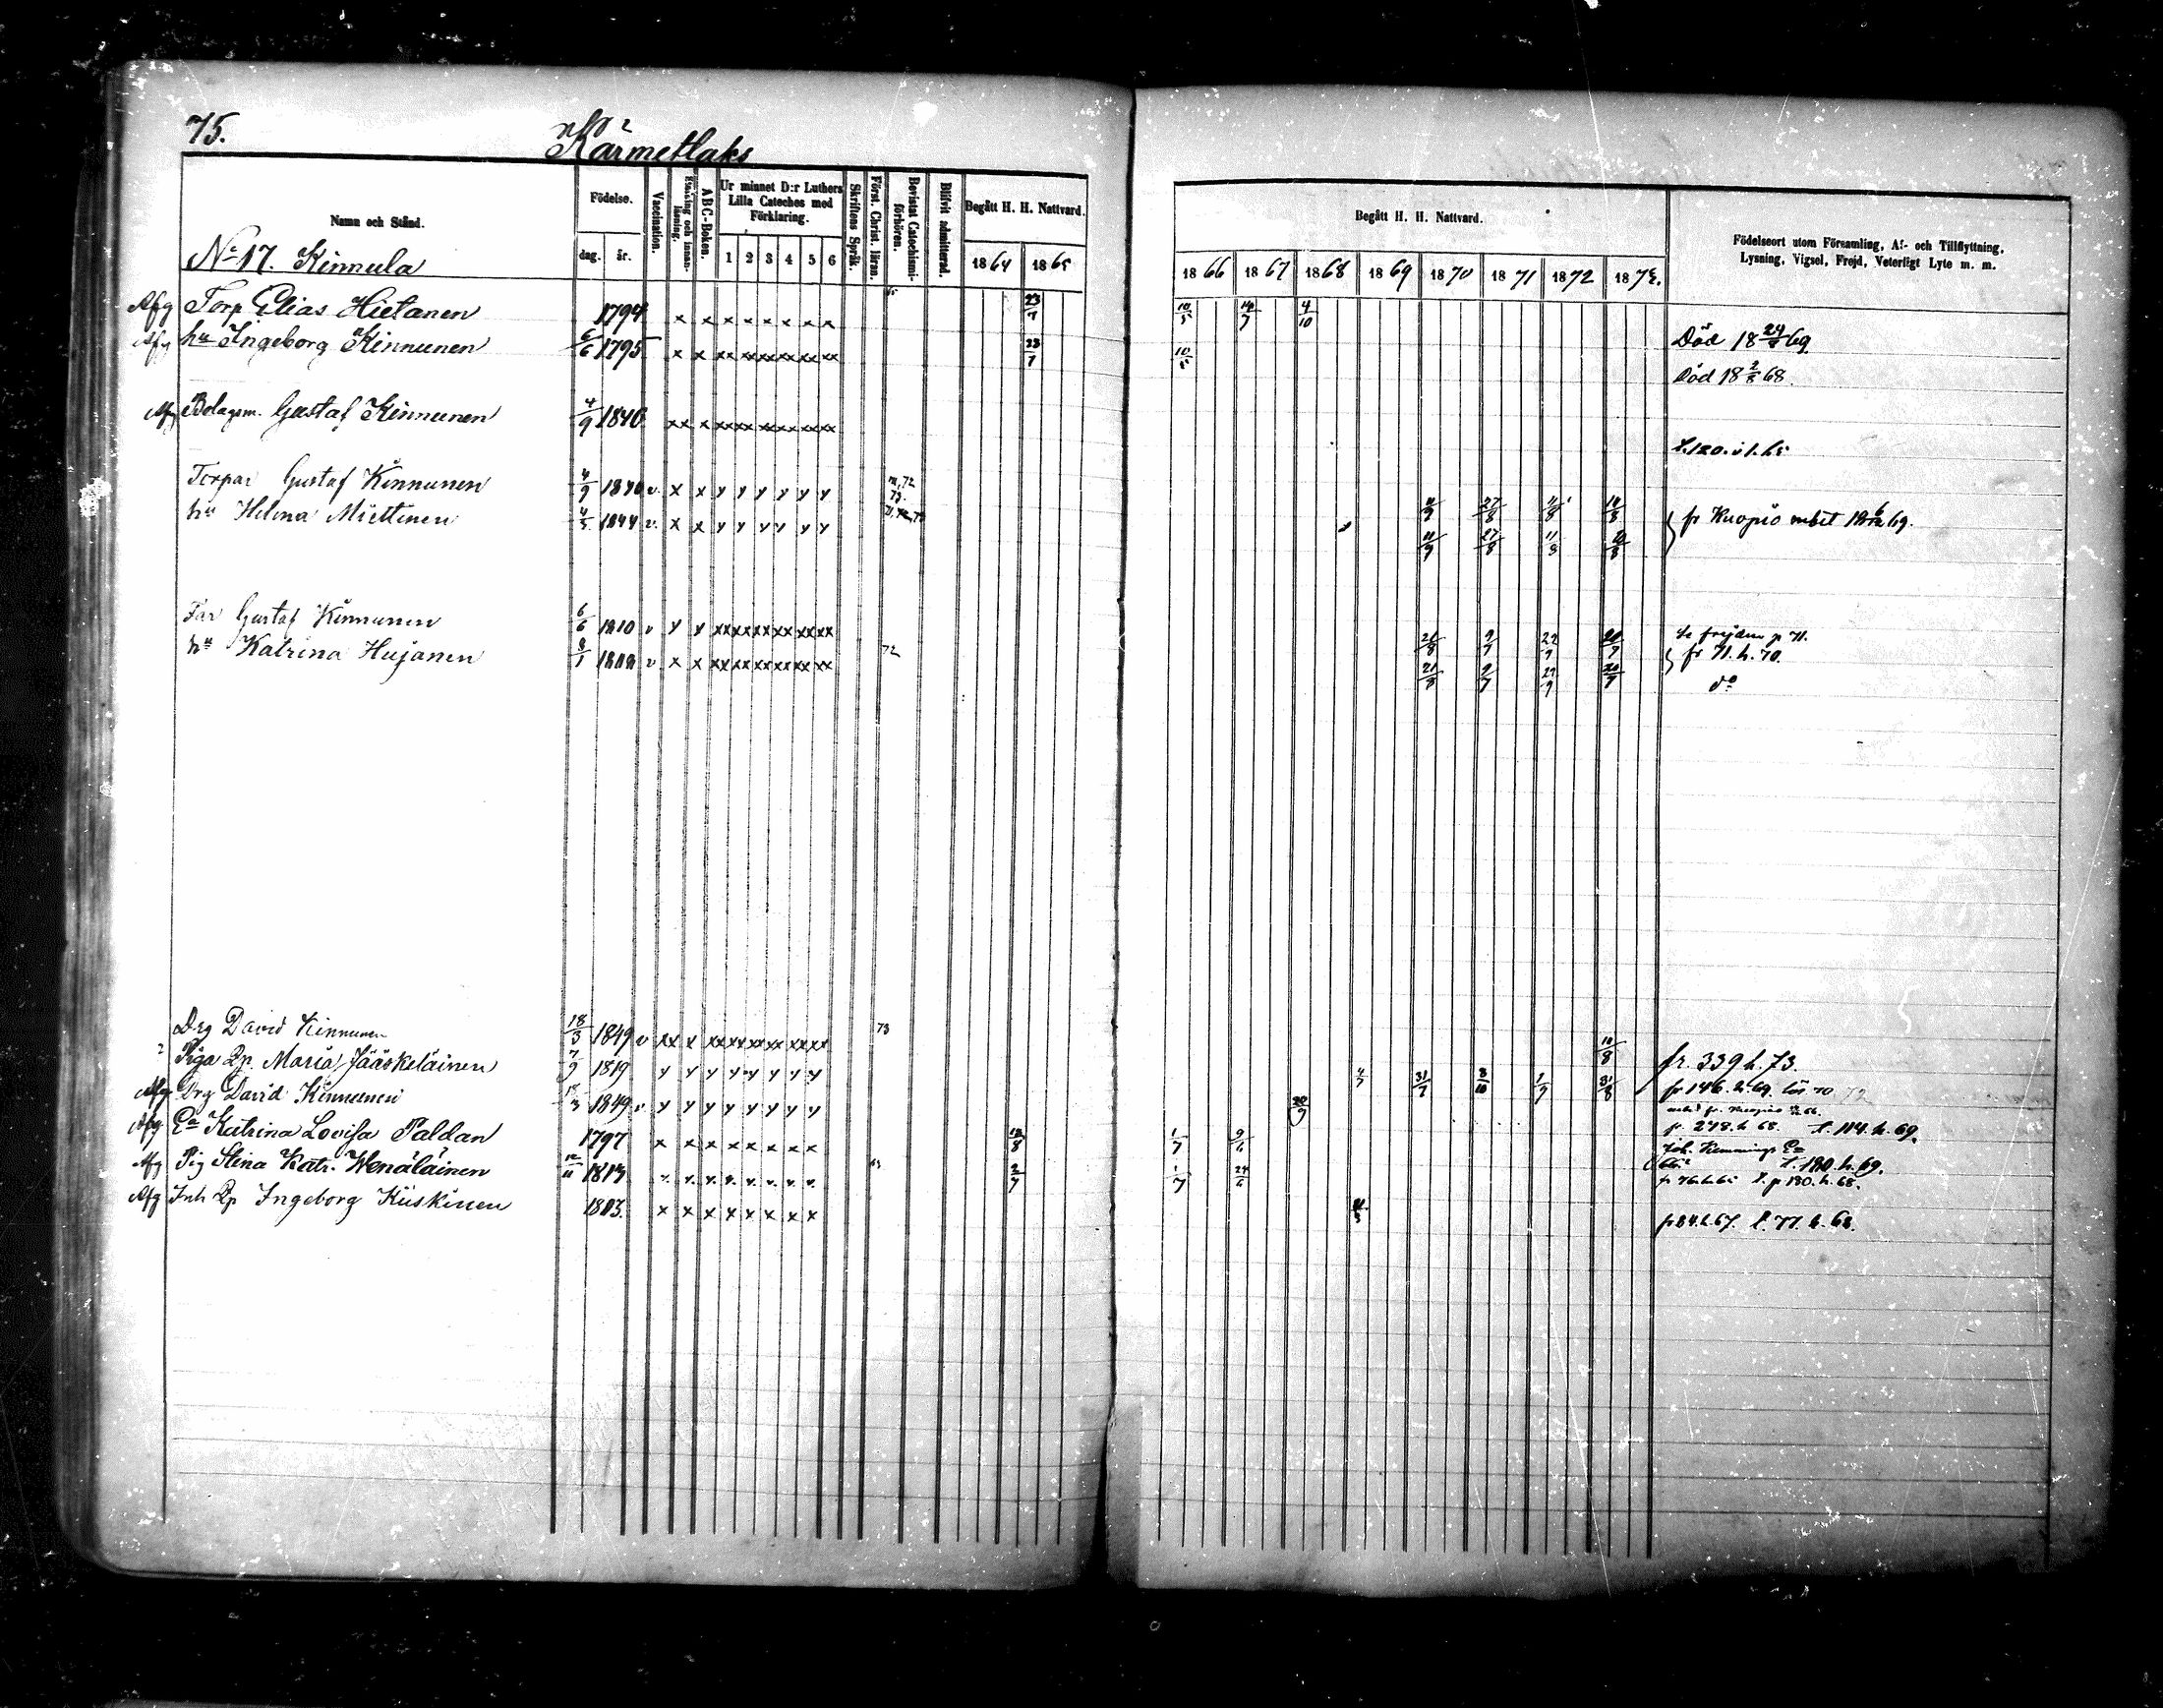 75. Kärmetlaks
Namn och Stånd.
Födelse.
dag. år.
Vaccination.
ABC-Boken.
Ur minnet D:r Luthers Lilla Cateches med Förklaring.
1 2 3 4 5 6
Skriftens Språk.
Först. Christ. läran.
Bevistat Catechismi-förhören.
Blifvit admitterad.
Begått H. H. Nattvard.
1864 1865
Begått H. H. Nattvard.
1866 1867 1868 1869 1870 1871 1872 1873.
Födelseort utom Församling, Af- och Tillflyttning,
Lysning, Vigsel, Frejd, Veterligt Lyte m. m.
No 17. Kinnula
Afg Torp Elias Hietanen 1794 x x x x x x x x 23/7 10/5 4/10 Död 18 24/ 69
Afg hu Ingeborg Kinnunen 6/6 1795 x x xx xx xx xx xx xx 23/7 10/5 Död 18 2/8 68
Afg Bolagsm. Gustaf Kinnunen 4/9 1840 xx x xx xx xx xx xx xx t. 120. 65
Torpar Gustaf Kinnunen 4/9 1840 v. x x y y y y y y 72 73. 11/9 27/8 11/8 10/8
hu Helena Miettinen 4/5 1844 v. x x y y y y y y 11/9 27/8 11/8 10/8 fr Kuopio 69.
Far Gustaf Kinnunen 6/6 1810 v y y xx xx xx xx xx xx 21/8 9/7 29/9 20/7 Se frejden p 71.
hu Katrina Hujanen 8/1 v x x xx xx xx xx xx xx 72 21/8 9/7 29/9 20/7 fr 71. h. 70.
do
Drg David Kinnunen 18/3 1849 v xx x xx xx xx xx xx xx 73 10/8 fr. 339 h. 73.
Piga Qp. Maria Jääskeläinen 7/9 1819 y y y y y y y y 4/7 31/7 8/10 1/9 31/8 fr 146. h 69.
Afg Drg David Kinnunen 18/3 1849 v y y y y y y y y 20/9 fr. Kuopio 66.
fr. 278. h 68. t. 114. h. 69.
Afg Ea Katrina Lovisa Paldan 1797 x x x x x x x x 12/8 1/7 9/6 Joh. Flemmings Ea
t. 180. h. 69.
Afg Pig Stina Katr. Wenäläinen 12/11 1813 v. v. v. v. v. v. v. v. 2/7 1/7 24/6 t. p 180. h. 68.
Afg Inh Qp Ingeborg Kiiskinen 1803. x x x x x x x x fr 84. h. 67. t. 77. h. 68.